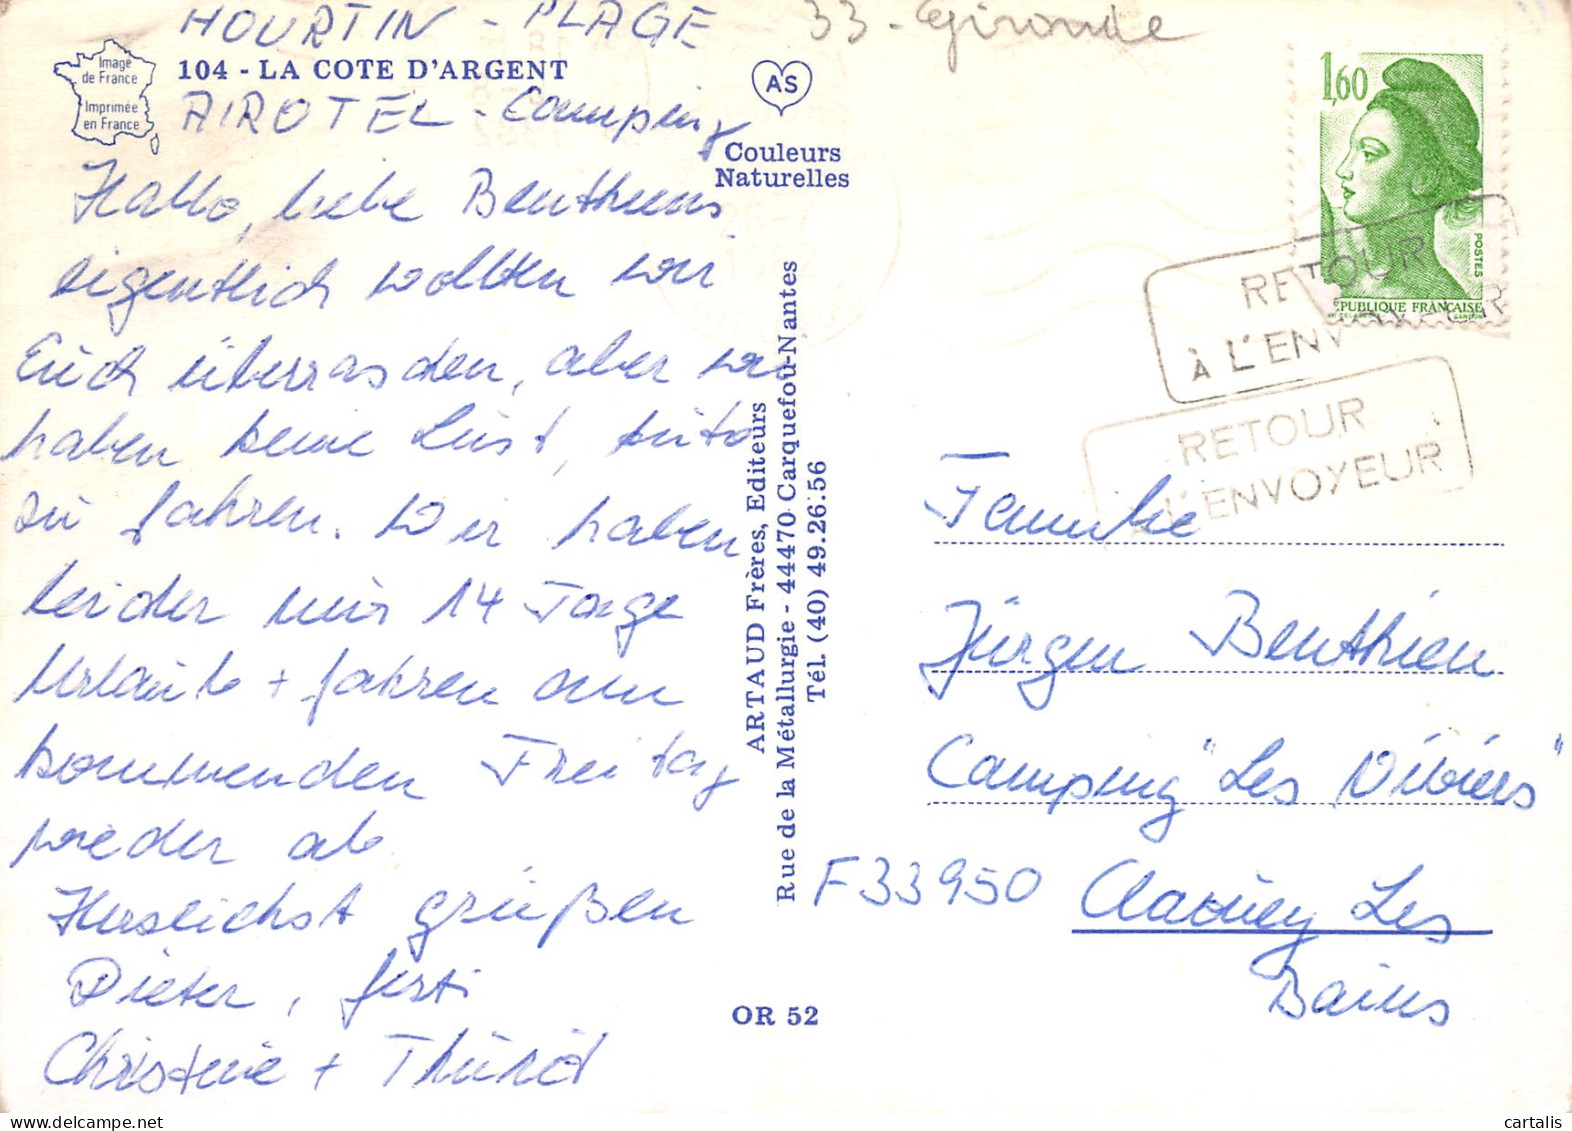 HOURTIN - PLAGE
33 - Gironde
Image
de France
Imprimée
en France
104 - LA COTE D'ARGENT
AIROTEL - Camping
AS
Couleurs
Naturelles
Hallo, liebe Benthiens
eigentlich wollten wir
Euch überraschen, aber wir
haben keine Lust, Auto
zu fahren. Wir haben
leider nur 14 Tage
Urlaub + fahren am
kommenden Freitag
wieder ab
Herzlichst grüßen
Dieter, Gerti
Christine +
ARTAUD Frères, Editeurs
Rue de la Métallurgie - 44470 Carquefou-Nantes
Tél. (40) 49.26.56
OR 52
1,60
POSTES
RÉPUBLIQUE FRANÇAISE
GANDON
RETOUR
À L'ENVOYEUR
RETOUR
L'ENVOYEUR
Familie
Jürgen Benthien
Camping "Les Viviers"
F33950 Claouey Les
Bains
cartalis www.delcampe.net